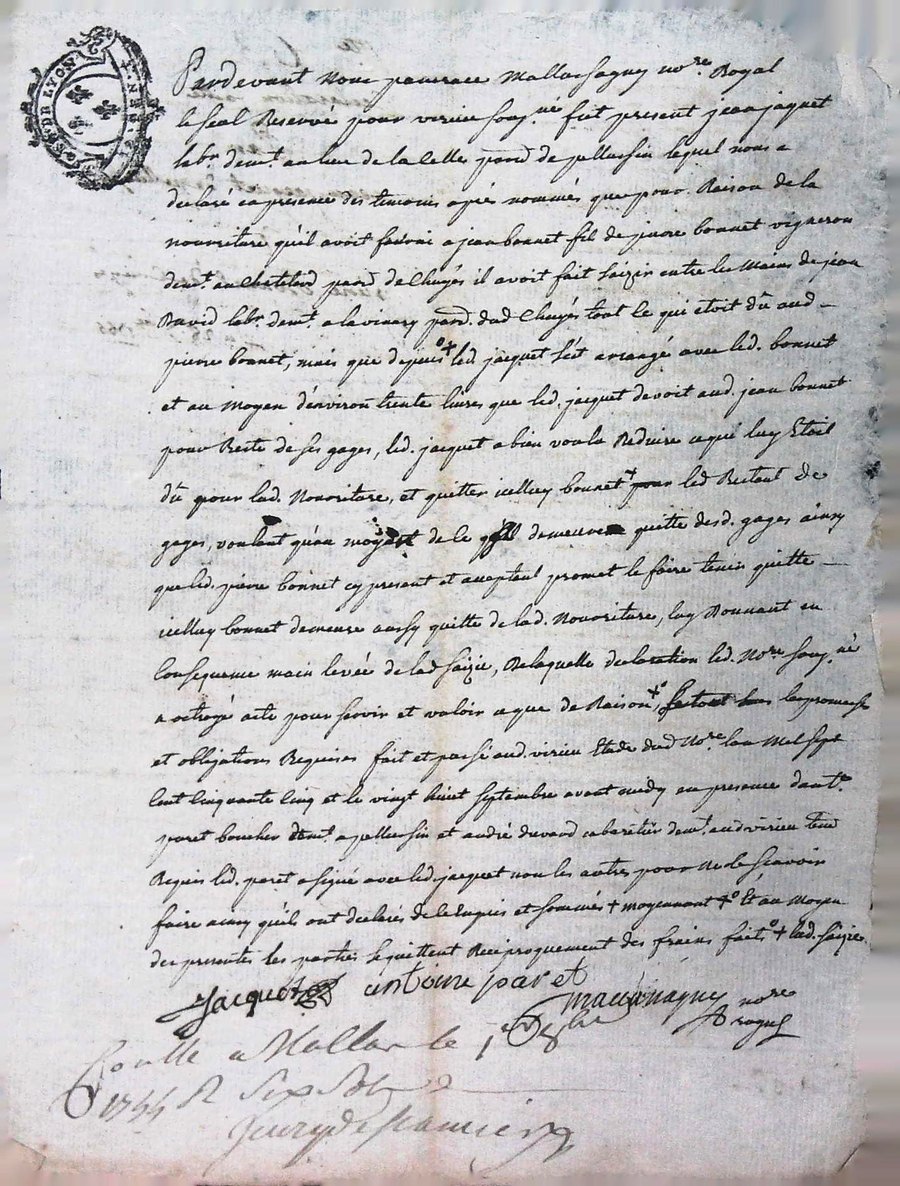 GEN. DE LYON
Pardevant Nous pancrace Mallassagny no.re Royal
le seal Reservé pour virieu soug.né fut present jean jaquet
lab.r dem.t au lieu de la Celles parr.e de pellussin lequel nous a
declaré en presence des temoins après nommés que pour Raison de la
nourriture qu'il avoit fourni a jean bonnet fil de pierre bonnet vigneron
dem.t au Chatelard parr.e de Chuyés il avoit fait saizir entre les Mains de jean
David lab.r dem.t a la vinary parr. dud Chuyés tout ce qui etoit dû aud
pierre bonnet, mais que depuis led jacquet s'est arrangé avec led. bonnet
et au Moyen d'environ trente livres que led. jacquet devoit aud jean bonnet
pour Reste de ses gages, led. jacquet a bien voulu Reduire ce qui luy Etoit
dû pour lad. Nouriture, et quitter icelluy bonnet + pour led Restant de
gages, voulant qu'au moyent de ce demeure quitte desd. gages ainsy
que led. pierre bonnet cy present et acceptant promet le faire tenir quitte
icelluy bonnet demeure aussy quitte de lad. Nouriture, luy Donnant en
Consequence main levée de lad saizie, De laquelle declaration led. No.re soug.né
a octroyé acte pour servir et valoir ce que de Raison +o, les promesses
et obligations Requises fait et passé aud. virieu Etude dud No.re l'an Mil sept
Cent Cinquante Cinq et le vingt huict septembre avant midy en presence d'ant.e
paret boucher dem.t a pellussin et andré durand cabaretier dem.t aud virieu
Requis led. paret a signé avec led. jacquet non les autres pour ne le scavoir
faire ainsy qu'ils ont declarés de ce enquis et sommés + moyennant +o Et au Moyen
des presentes les parties se quittent Reciproquement des frains faits +o lad. saizie
Jacquet antoine paret
no.re
royal
a Mallas le 1er 8bre
1755 R six sols